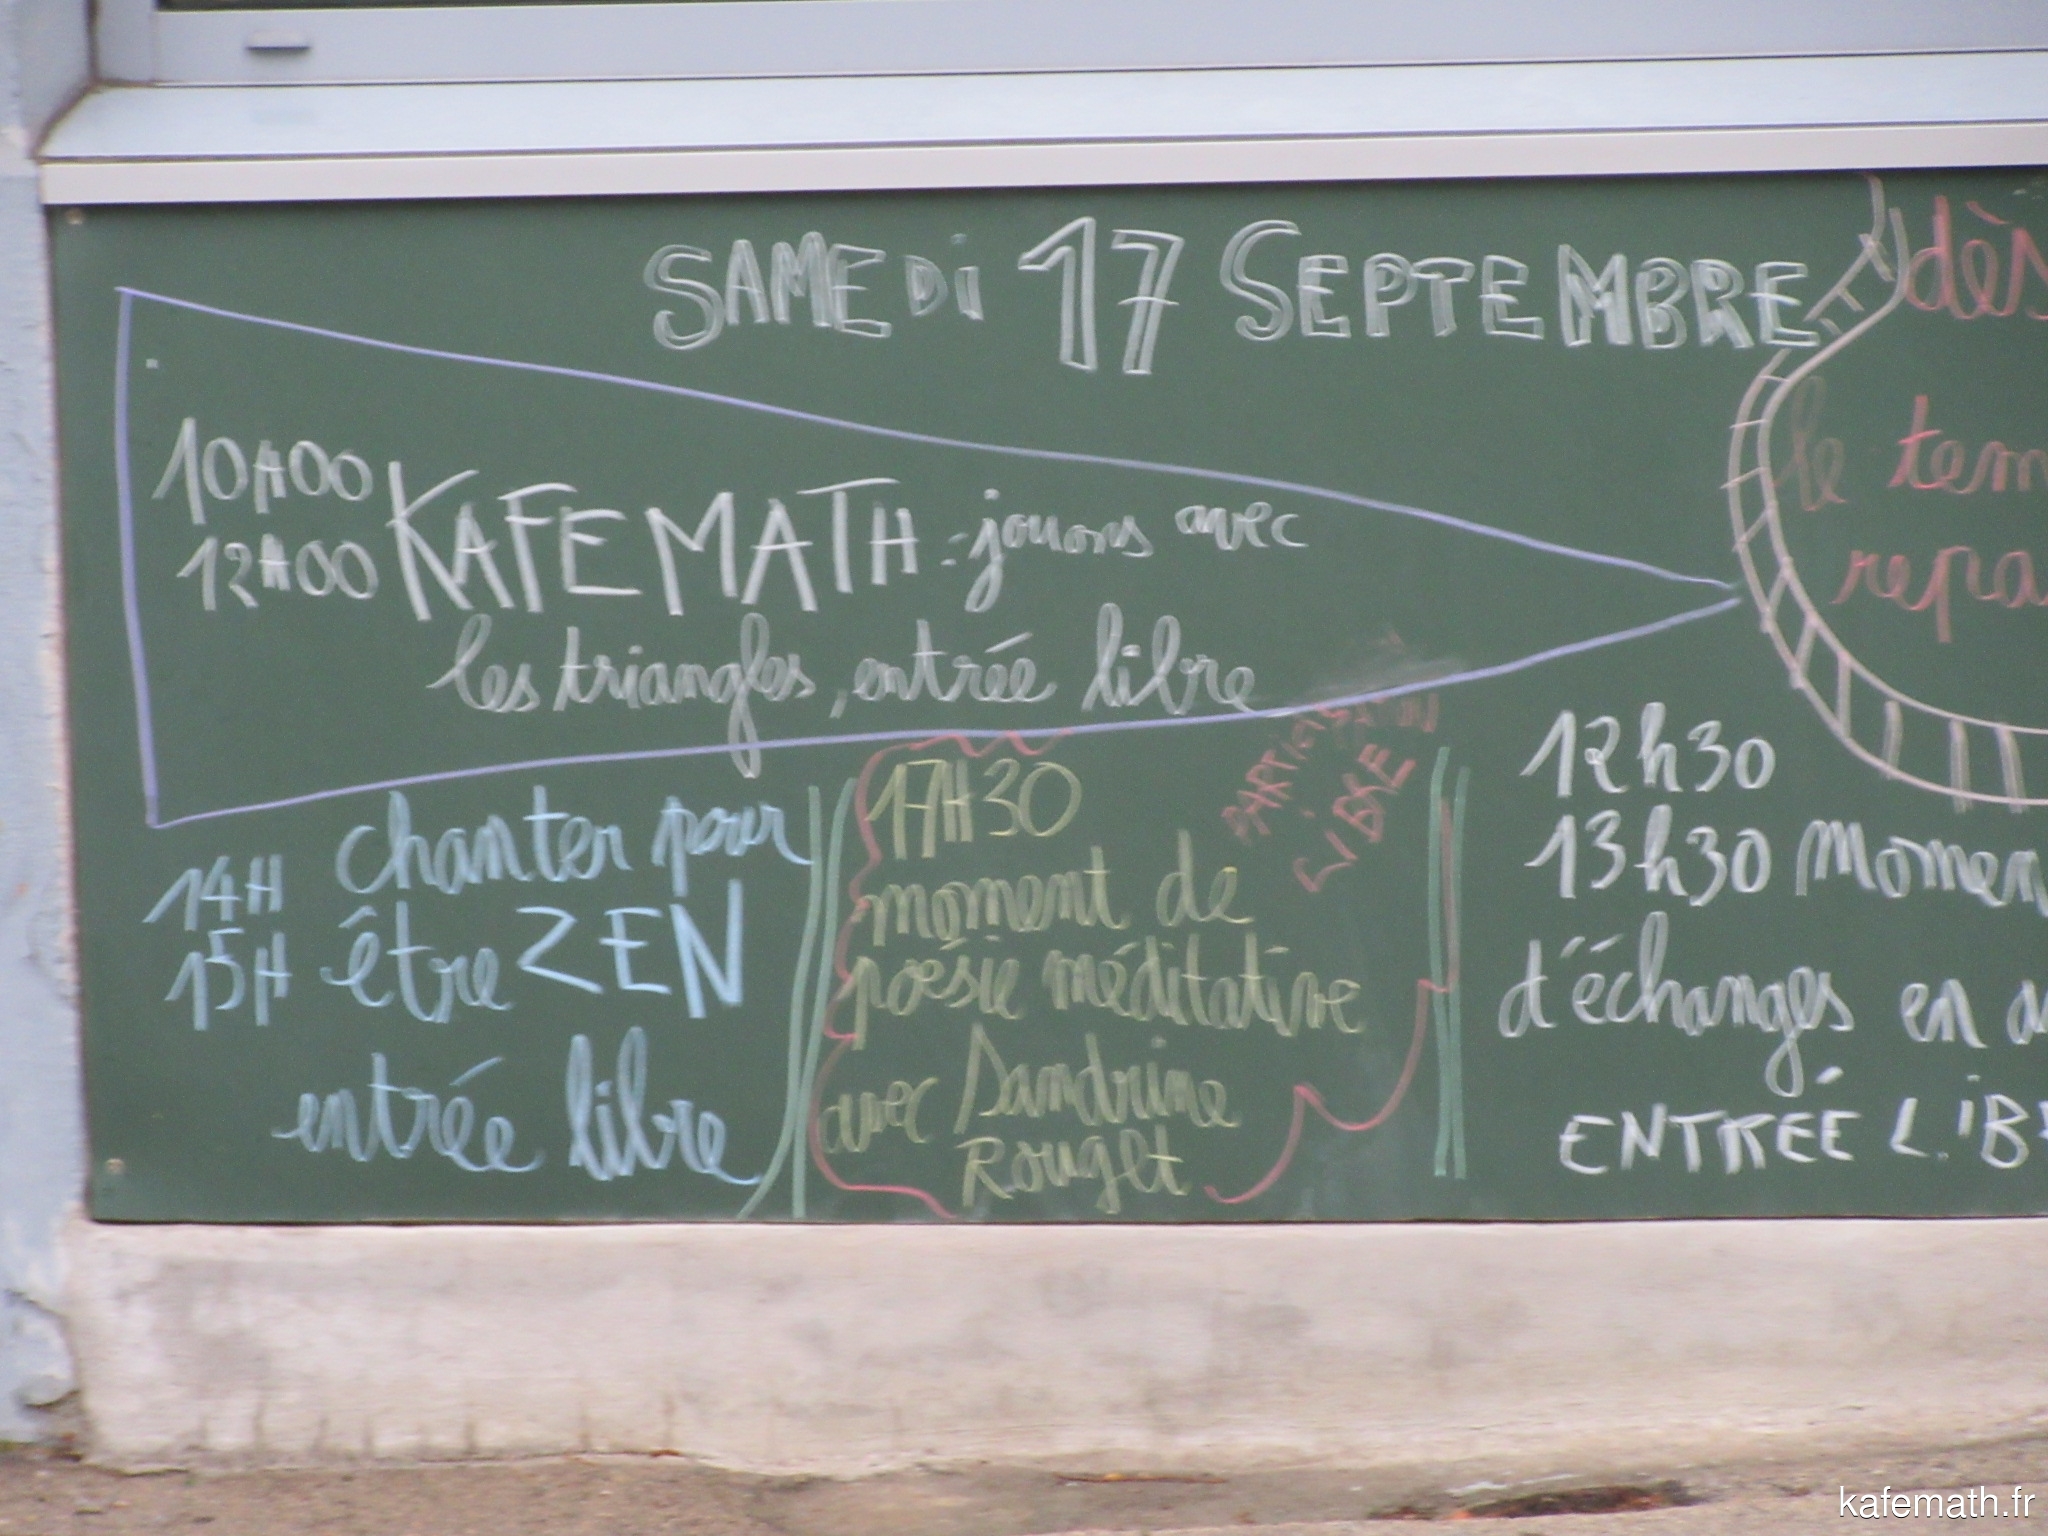 SAMEDI 17 SEPTEMBRE
10H00
12H00
KAFEMATH : jouons avec
les triangles, entrée libre
14H
15H
chanter pour
être ZEN
entrée libre
17H30
moment de
poésie méditative
avec Sandrine
Rouget
PARTICIPATION
LIBRE
dès
le
12h30
13h30
d'échanges en
ENTRÉE
kafemath.fr